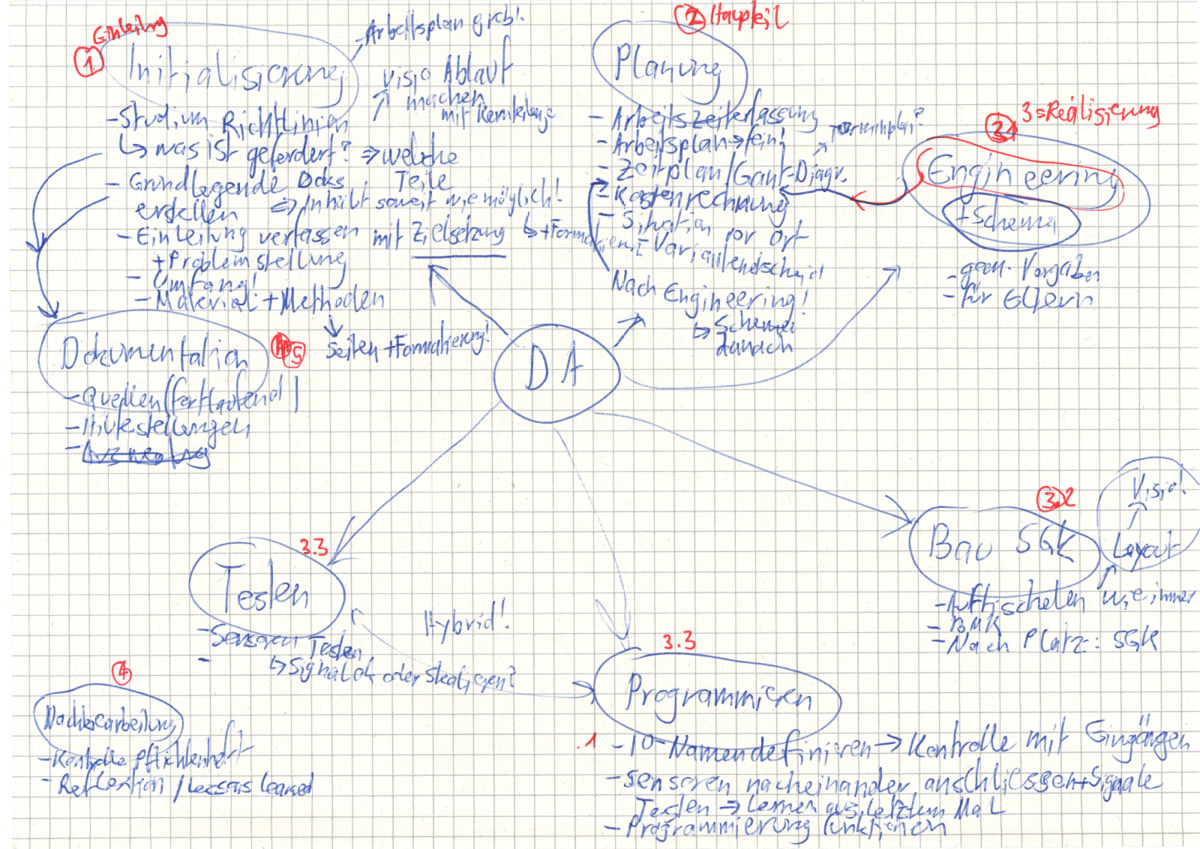 Einleitung
1
Initialisierung
- Arbeitsplan grob!
Visio Ablauf
machen
mit Remteilunge
- Studium Richtlinien
↳ was ist gefordert? ⇒ welche
Teile
- Grundlegende Doks
erstellen ⇒ Inhalt soweit wie möglich!
- Einleitung verfassen mit Zielsetzung ↳ + Formatieren
+ Problemstellung
- Umfang!
- Material + Methoden
Seiten + Formatierung!
Dokumentation
5
- Quellen (fortlaufend)
- Hilfestellungen
2 Hauptteil
Planung
- Arbeitszeiterfassung
- Arbeitsplan → fein!
- Zeitplan/Gant-Diagr.
- Kostenrechnung
- Situation vor Ort
- Variantendscheid
Nach Engineering!
↳ Schema
danach
3 = Realisierung
Engineering
+ Schema
- gem. Vorgaben
- für
DA
3.2
Bau SGK
Visio!
Layout
- Auftischeln wie immer
- BMK
- Nach Platz: SGK
3.3
Testen
- Sensoren Testen
↳ Signal ok oder Skalieren?
Hybrid!
3.3
Programmieren
.1 - IO-Namen definieren → Kontrolle mit Eingängen
- Sensoren nacheinander anschliessen + Signale
Testen ⇒ Lernen aus letztem Mal
- Programmierung Funktionen
4
Nachbearbeitung
- Kontrolle Pflichtenheft
- Reflextion / Lessons learned